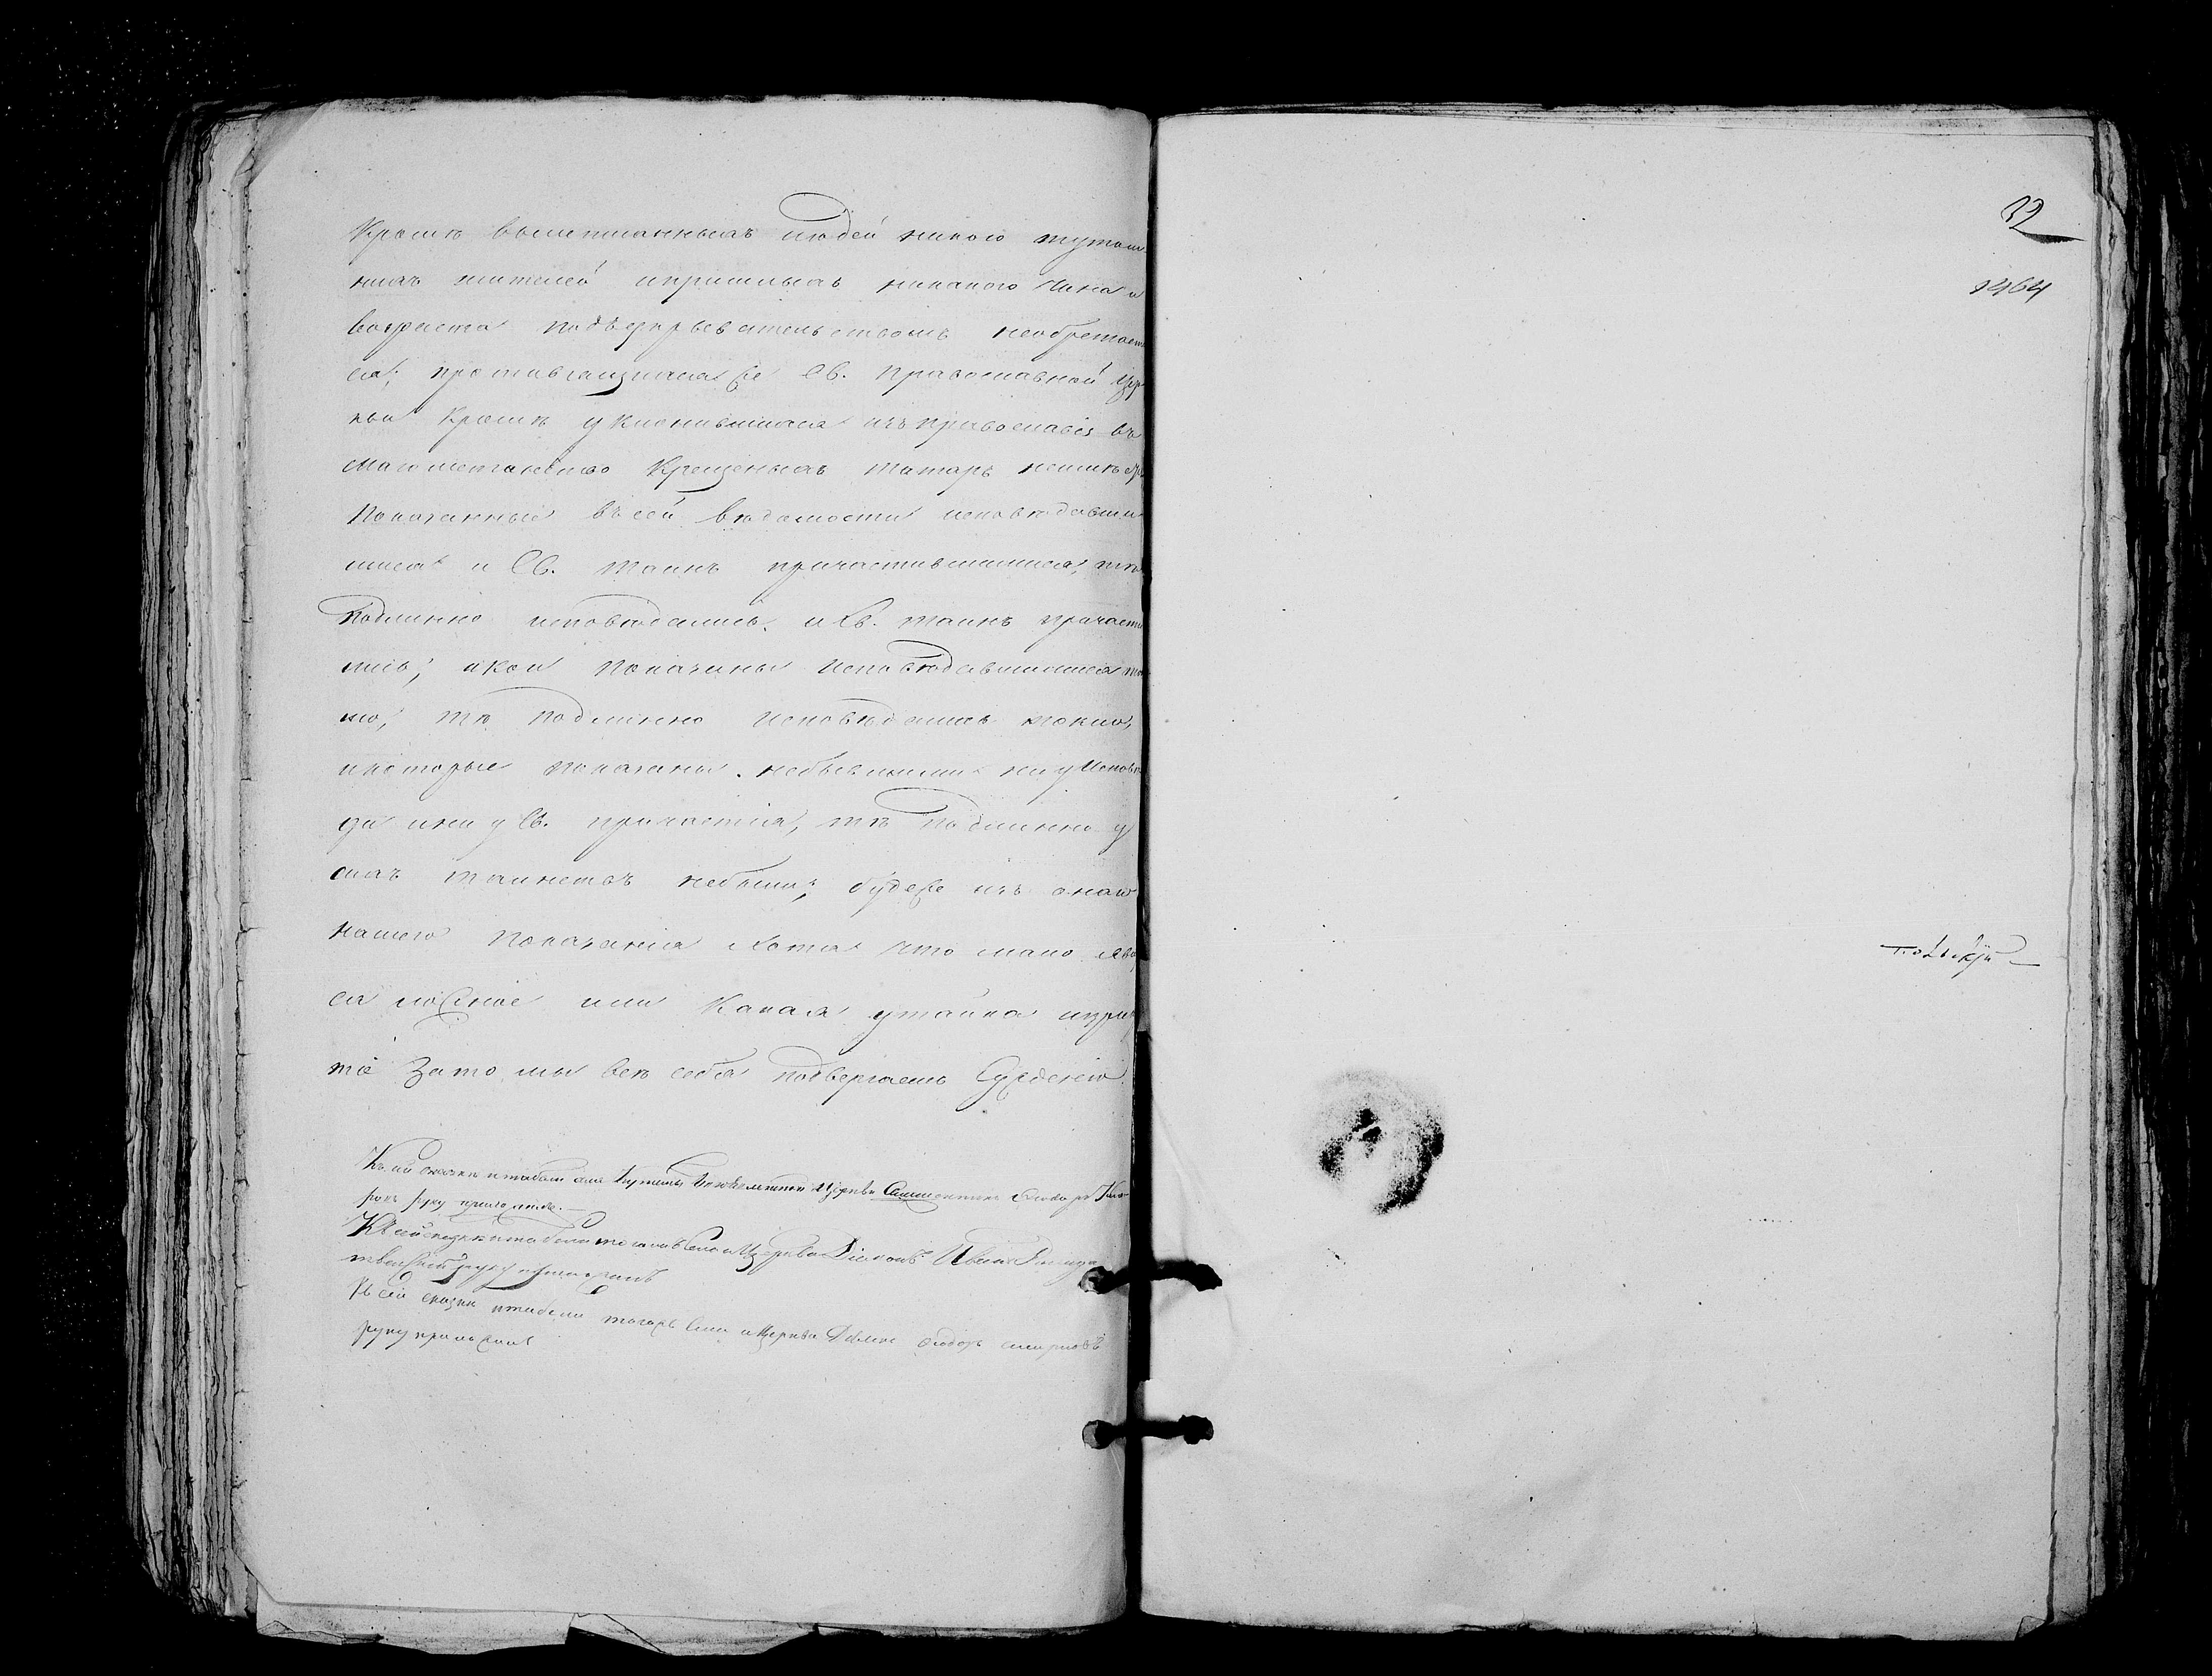 Кромѣ вышеписанныхъ людей никого тутош
нихъ жителей и пришлыхъ никакого чина и
возраста подъ укрывательствомъ необретает
ся; противляющихся же Св. Православной Цер
кви кромѣ уклонившихся изъ православія въ
магометанство крещеныхъ татаръ
Показанные въ сей вѣдомости исповѣдавши
мися и Св. таинъ причастившимися, тѣ
подлинно исповѣдались и Св. таинъ причасти
лись; и кои показаны исповѣдавшимися то
мо, тѣ подлинно исповѣдались токмо,
и которые показаны небывшими ни у исповѣ
ди и ни у Св. причастія, тѣ подлинно у
сихъ таинствъ небыли; будеже изъ онаго
нашего показанія хотя что мало яви
ся ложное или какая утайка
то за то мы всѣ себя подвергаемъ сужденію
Къ сей сказкѣ и табели села Церкви Священникъ
руку приложилъ.
Къ сей сказкѣ и табели того жъ села и Церкви Діаконъ Иванъ
руку приложилъ
Къ сей сказкѣ и табели тогожъ села и Церкви Ѳедоръ Смирновъ
руку приложилъ
32
1464